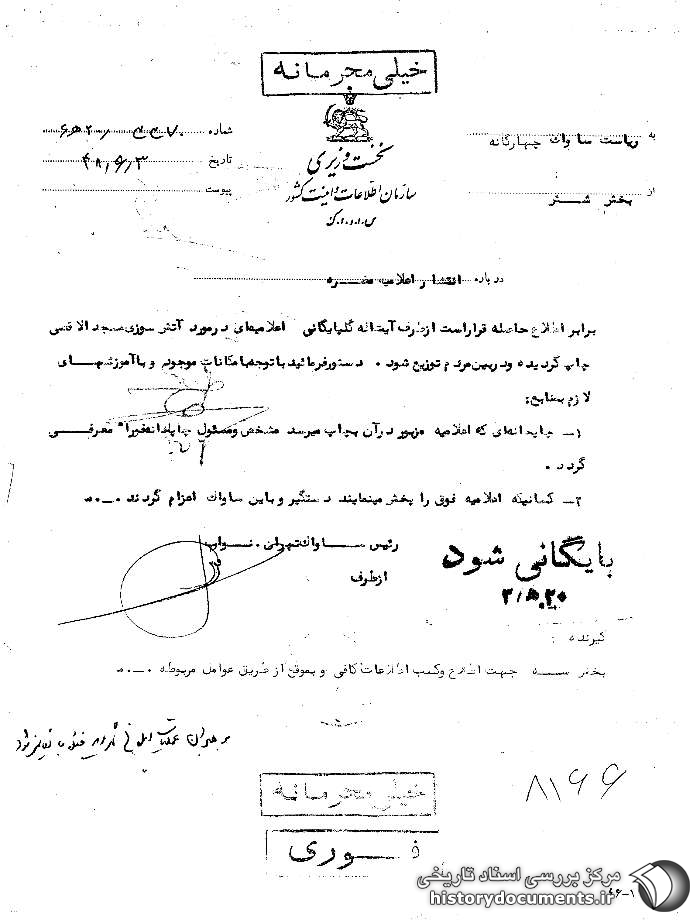 خیلی محرمانه
به ریاست ساواک چهارگانه
از بخش شش
نخست وزیری
سازمان اطلاعات و امنیت کشور
س.ا.و.ا.ک
شماره
تاریخ ۴۸٫۶٫۳
پیوست
درباره انتشار اعلامیه مضره
برابر اطلاع حاصله قرار است از طرف آیت‌اله گلپایگانی اعلامیه‌ای در مورد آتش سوزی مسجد الاقصی
چاپ گردیده و در بین مردم توزیع شود. دستور فرمائید با توجه بامکانات موجود و با آموزشهای
لازم بمنابع:
۱ـ چاپخانه‌ای که اعلامیه مزبور در آن بچاپ میرسد مشخص و مسئول چاپخانه فورا" معرفی
گردد.
۲ـ کسانیکه اعلامیه فوق را پخش مینمایند دستگیر و باین ساواک اعزام گردند
رئیس ساواک تهران. نواب
از طرف
بایگانی شود
گیرنده:
بخش سه جهت اطلاع و کسب اطلاعات کافی و بموقع از طریق عوامل مربوطه
خیلی محرمانه
۸۱۶۶
فوری
۴۶-۱
مرکز بررسی اسناد تاریخی
historydocuments.ir